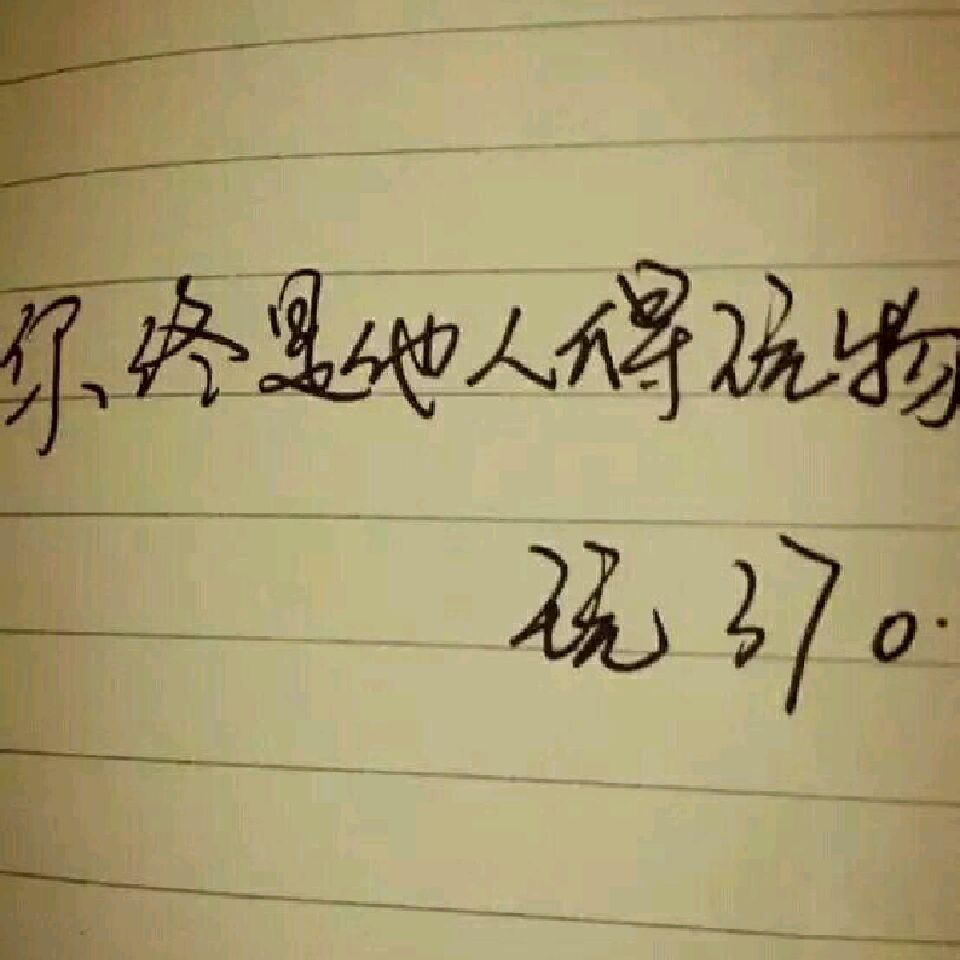 你终是他人得玩物
玩